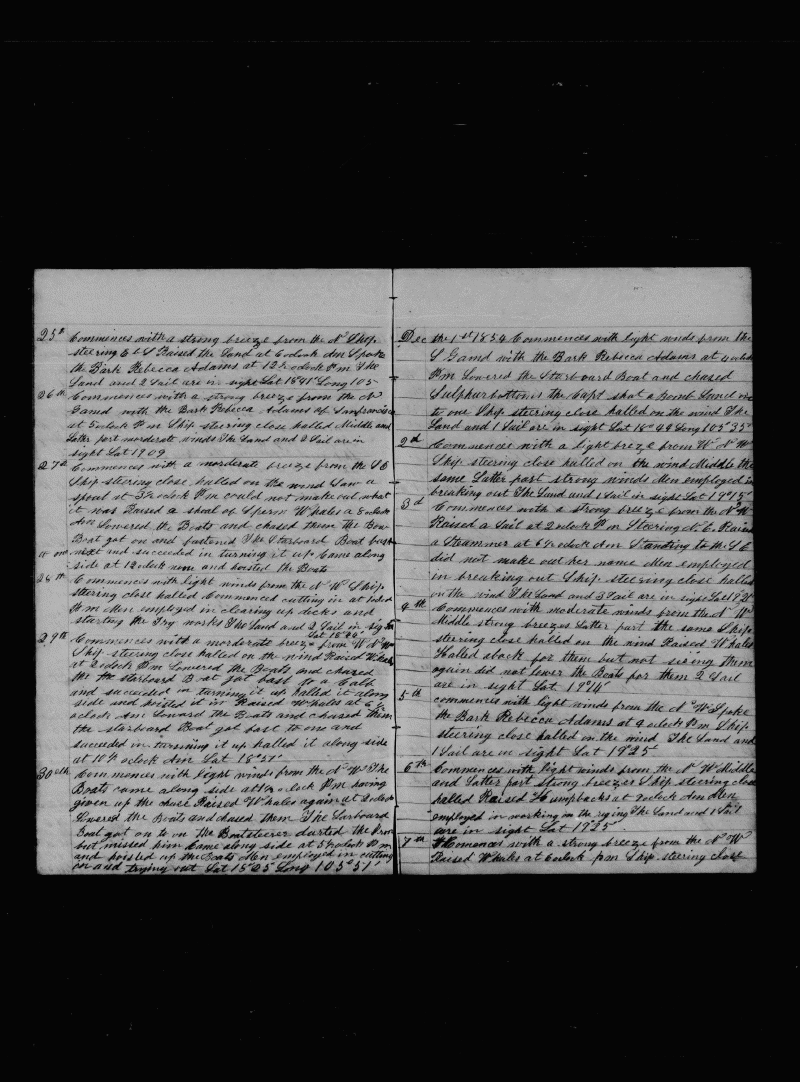 25th Commences with a strong breeze from the Nd Ship
steering E b S Raised the Land at 6 oclock Am Spoke
the Bark Rebecca Adams at 12½ oclock Pm The
Land and 2 Sail are in sight Lat 18°41' Long 105
26th Commences with a strong breeze from the N
Gamd with the Bark Rebecca Adams of Sanfrancisco
at 5 oclock Pm Ship steering close halled Middle and
Latter part morderate winds The Land and 2 Sail are in
sight Lat 19 09
27th Commences with a morderate breeze from the S E
Ship steering close halled on the wind Saw a
spout at 3½ oclock Pm could not make out what
it was Raised a shoal of Sperm Whales a 8 oclock
Am Lowered the Boats and chased them the Bow
Boat got on and fastened The Starboard Boat fast
next and succeeded in turning it up Came along
side at 12 oclock and hoisted the Boats
28th Commences with light winds from the N W Ship
steering close halled Commenced cutting in at oclock
Pm Men employed in clearing up decks and
starting the Try works The Land and 2 Sail in sight
Lat 18°
29th Commences with a morderate breeze from W N W
Ship steering close halled on the wind Raised Whales
at 2 oclock Pm Lowered the Boats and chased
the starboard Boat got fast to a Calf
and succeeded in turning it up halled it along
side and hoisted it in Raised Whales at 6½
oclock Am Lowerd the Boats and chased them
the starboard Boat got fast to one and
succeeded in turning it up halled it along side
at 10½ oclock Am Lat 18°51'
30eth Commences with light winds from the N W The
Boats came along side at oclock Pm having
given up the chase Raised Whales again at 2 oclock
Lowered the Boats and chased them The Larboard
Boat got on to on the Boatsteerer darted the Iron
but missed him Came along side at 5½ oclock Pm
and hoisted up the Boats Men employed in cutting
in and trying out Lat 18°25' Long 105°51'
Dec the 1st 1854 Commences with light winds from the
S Gamd with the Bark Rebecca Adams at 4 oclock
Pm Lowered the Starboard Boat and chased
Sulphurbottoms the Capt shot a Bomb Lance in
to one Ship steering close halled on the wind The
Land and 1 Sail are in sight Lat 18° 49 Long 105°35'
2d Commences with a light breze from W N W
Ship steering close halled on the wind Middle the
same Latter part strong winds Men employed in
breaking out The Land and 1 Sail in sight Lat 19°15'
3d Commences with a strong breeze from the N W
Raised a Sail at 2 oclock Pm Steering N E Raised
a Steammer at 6½ oclock Am Standing to the S E
did not make out her name Men employed
in breaking out Ship steering close halled
on the wind The Land and 3 Sail are in sight Lat 19°21'
4th Commences with moderate winds from the N W
Middle strong breezes Latter part the same Ship
steering close halled on the wind Raised Whales
Halled aback for them but not seeing them
again did not lower the Boats for them 2 Sail
are in sight Lat 19°14'
5th commences with light winds from the N W Spoke
the Bark Rebecca Adams at 9 oclock Pm Ship
steering close halled on the wind The Land and
1 Sail are in sight Lat 19°25'
6th Commences with light winds from the N W Middle
and Latter part strong breezes Ship steering close
halled Raised Humpbacks at 9 oclock Am Men
employed in working on the rging The Land and 1 Sail
are in sight Lat 19°25'
7th Comences with a strong breeze from the N W
Raised Whales at 6 oclock pm Ship steering close